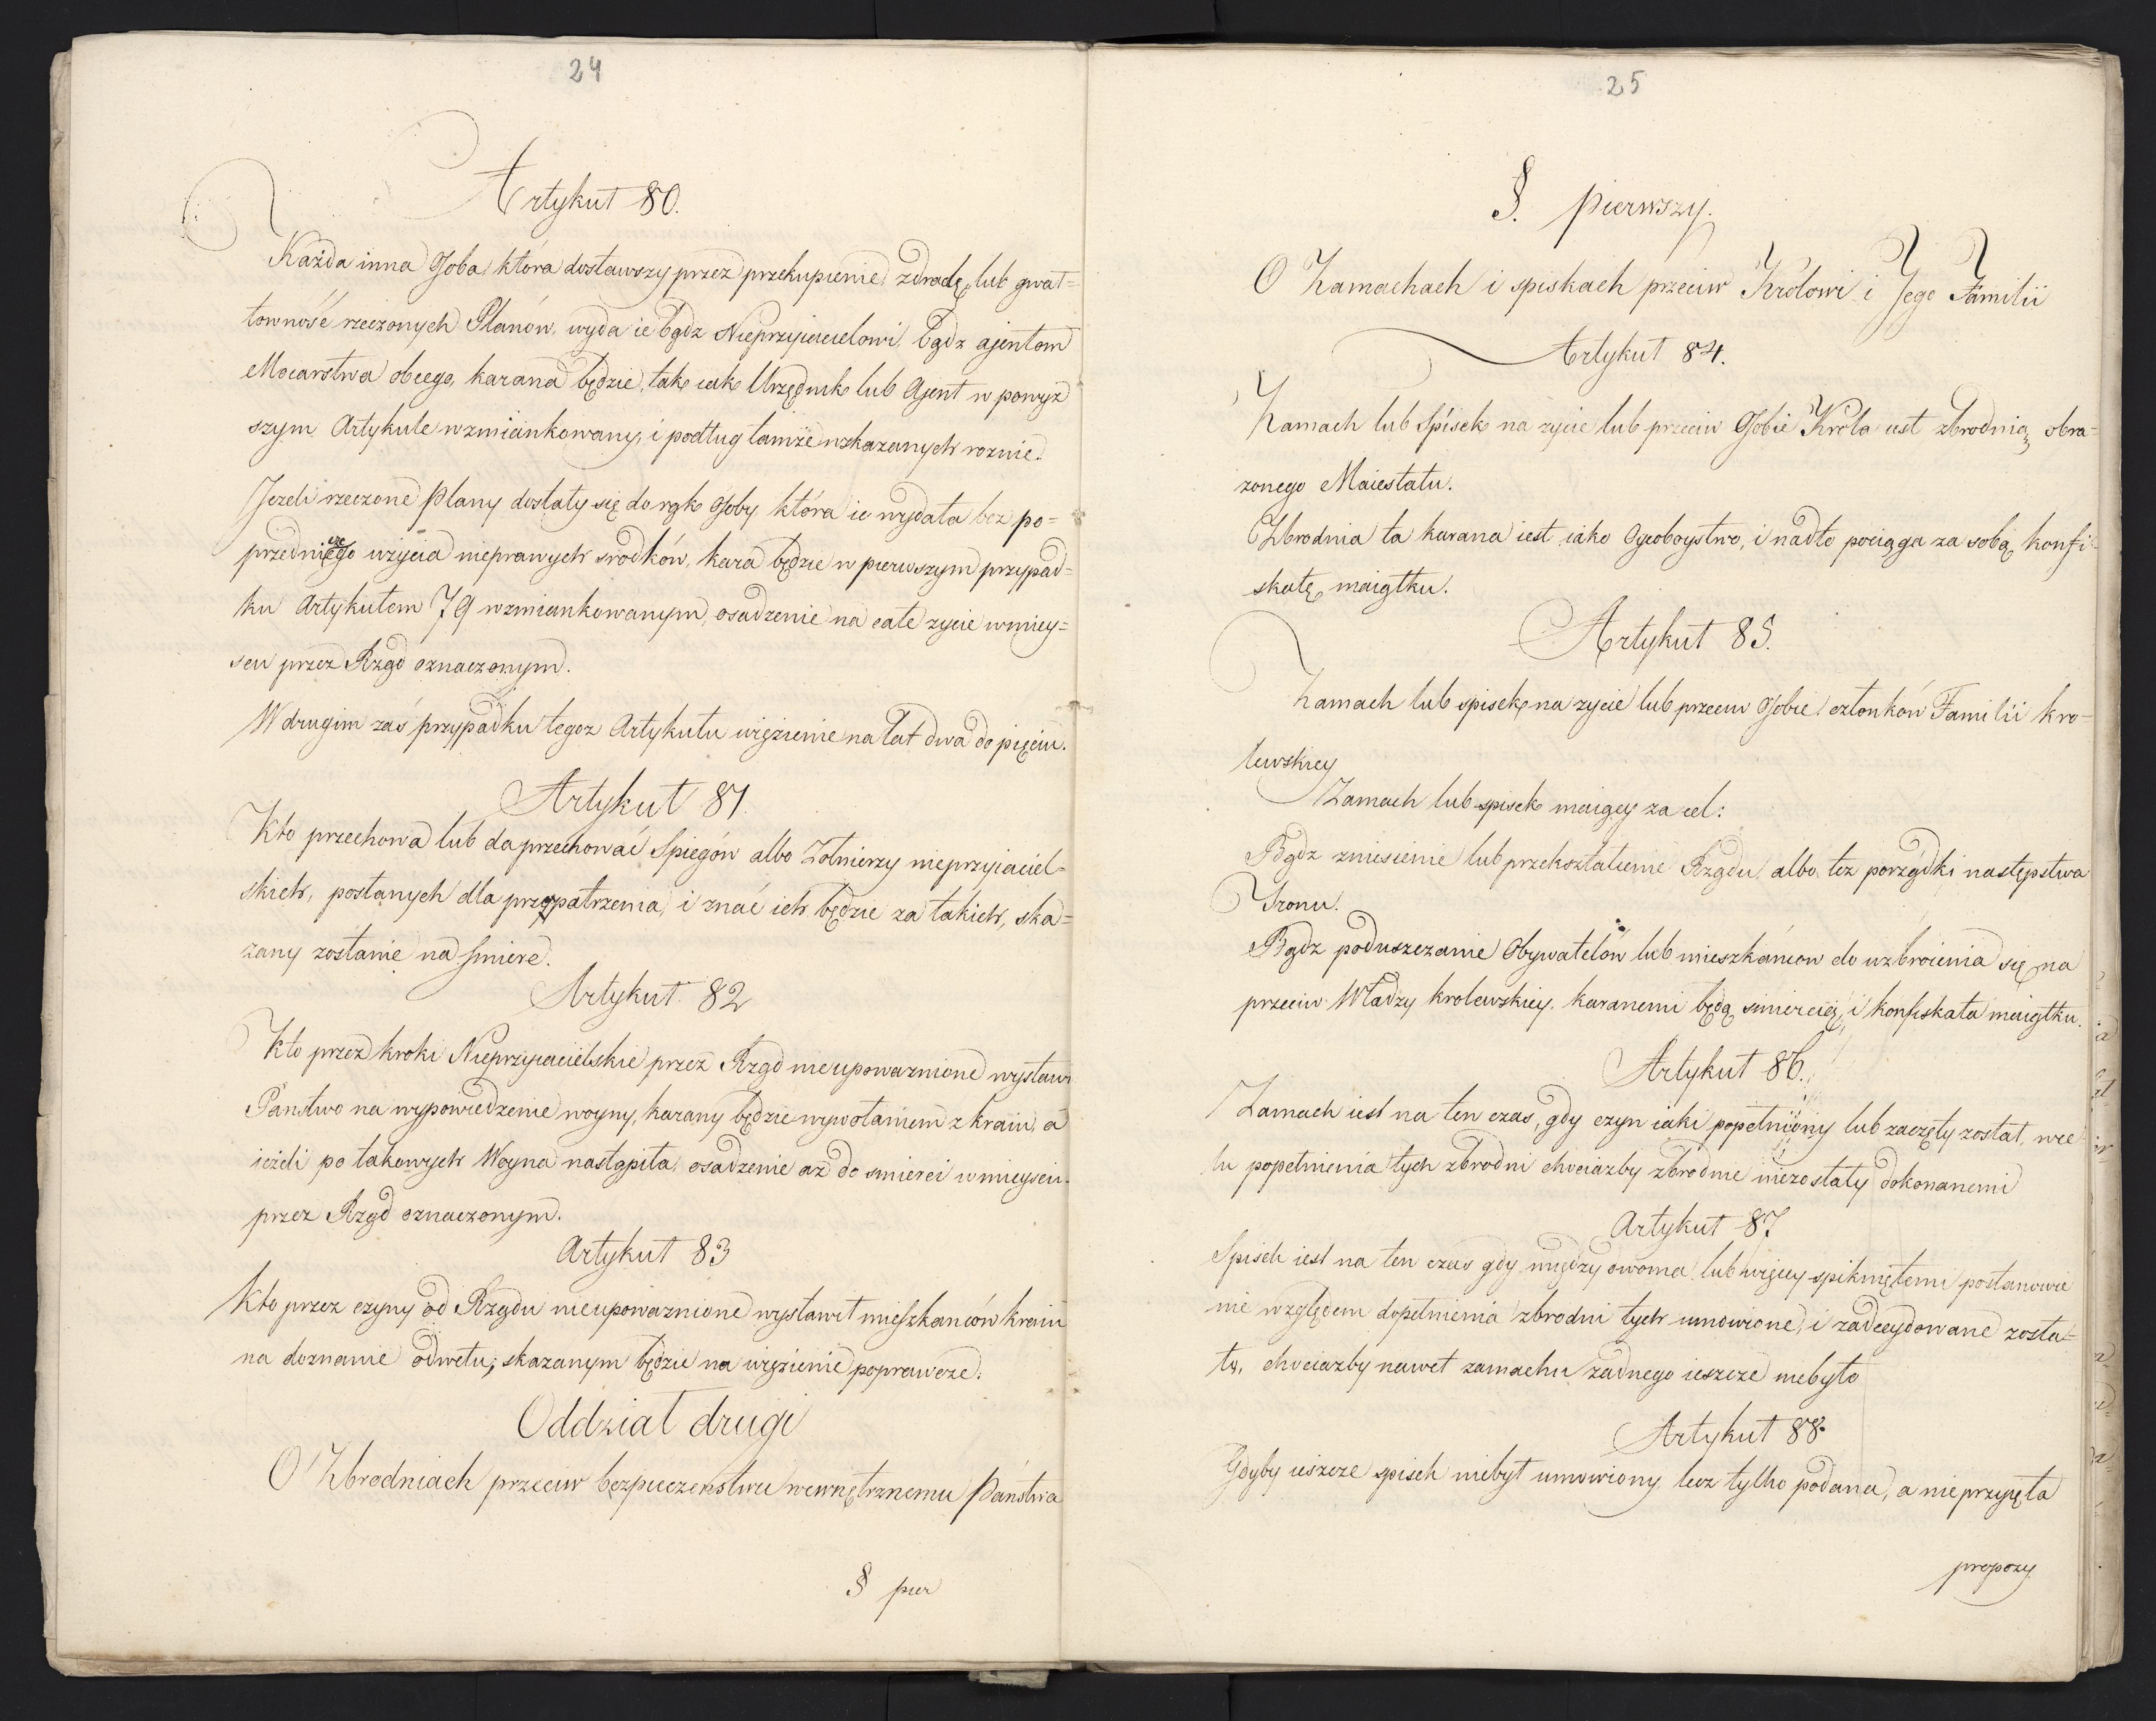 24
Artykuł 80.
Każda inna Osoba, która dostawszy przez przekupienie, zdradę, lub gwał=
towność rzeczonych Planów, wyda ie bądz Nieprzyiacielowi, bądz ajentom
Mocarstwa obcego, karana będzie, tak iak Urzędnik lub Ajent w powyz
szym Artykule wzmiankowany, i podług tamże wskazanych roznic.
Jezeli rzeczone Plany dostały się do rąk Osoby która ie wydała bez po=
przedniego użycia nieprawych srodków, kara będzie w pierwszym przypad=
ku Artykułem 79 wzmiankowanym, osadzenie na całe zycie w miey=
scu przez Rząd oznaczonym.
W drugim zaś przypadku tegoz Artykułu więzienie na lat dwa do pięciu.
Artykuł 81.
Kto przechowa lub da przechować Spiegów albo Zołnierzy nieprzyiaciel=
skich, posłanych dla przepatrzenia, i znać ich będzie za takich, ska=
zany zostanie na smierc.
Artykuł 82
Kto przez kroki Nieprzyiacielskie przez Rząd nieupowaznione wystawi
Państwo na wypowiedzenie woyny, karany będzie wywołaniem z kraiu, a
ieżeli po takowych Woyna nastąpiła, osadzenie aż do smierci w mieyscu
przez Rząd oznaczonym.
Artykuł 83
Kto przez czyny od Rządu nieupowaznione wystawił mieszkanców kraiu
na doznanie odwetu, skazanym będzie na więzienie poprawcze.
Oddział drugi
O Zbrodniach przeciw bezpieczenstwu wewnętrznemu Państwa
§ pier
25
§. pierwszy.
O Zamachach i spiskach przeciw Królowi i Jego Familii
Artykuł 84.
Zamach lub Spisek na zycie lub przeciw Osobie Króla iest zbrodnią obra=
zonego Maiestatu.
Zbrodnia ta karana iest iako Oycoboystwo, i nadto pociąga za sobą konfi=
skatę maiątku.
Artykuł 85.
Zamach lub spisek na zycie lub przeciw Osobie członków Familii kro=
lewskiey
Zamach lub spisek maiący za cel:
Bądz zniesienie lub przekształcenie Rządu albo tez porządki następstwa
Tronu.
Bądz poduszczanie Obywatelów lub mieszkańcow do uzbroienia się na
przeciw Władzy krolewskiey. karanemi będą smiercią, i konfiskata maiątku.
Artykuł 86.
Zamach iest na ten czas, gdy czyn iaki popełniony lub zaczęty został, w ce
lu popełnienia tych zbrodni chociazby zbrodnie niezostały dokonanemi
Artykuł 87
Spisek iest na ten czas gdy między dwoma lub więcey spikniętemi postanowie
nie względem dopełnienia zbrodni tych umowione, i zadecydowane zosta=
ło, chociazby nawet zamachu żadnego ieszcze niebyło
Artykuł 88.
Gdyby ieszcze spisek niebył umowiony, lecz tylko podana, a nie przyięta
propozy